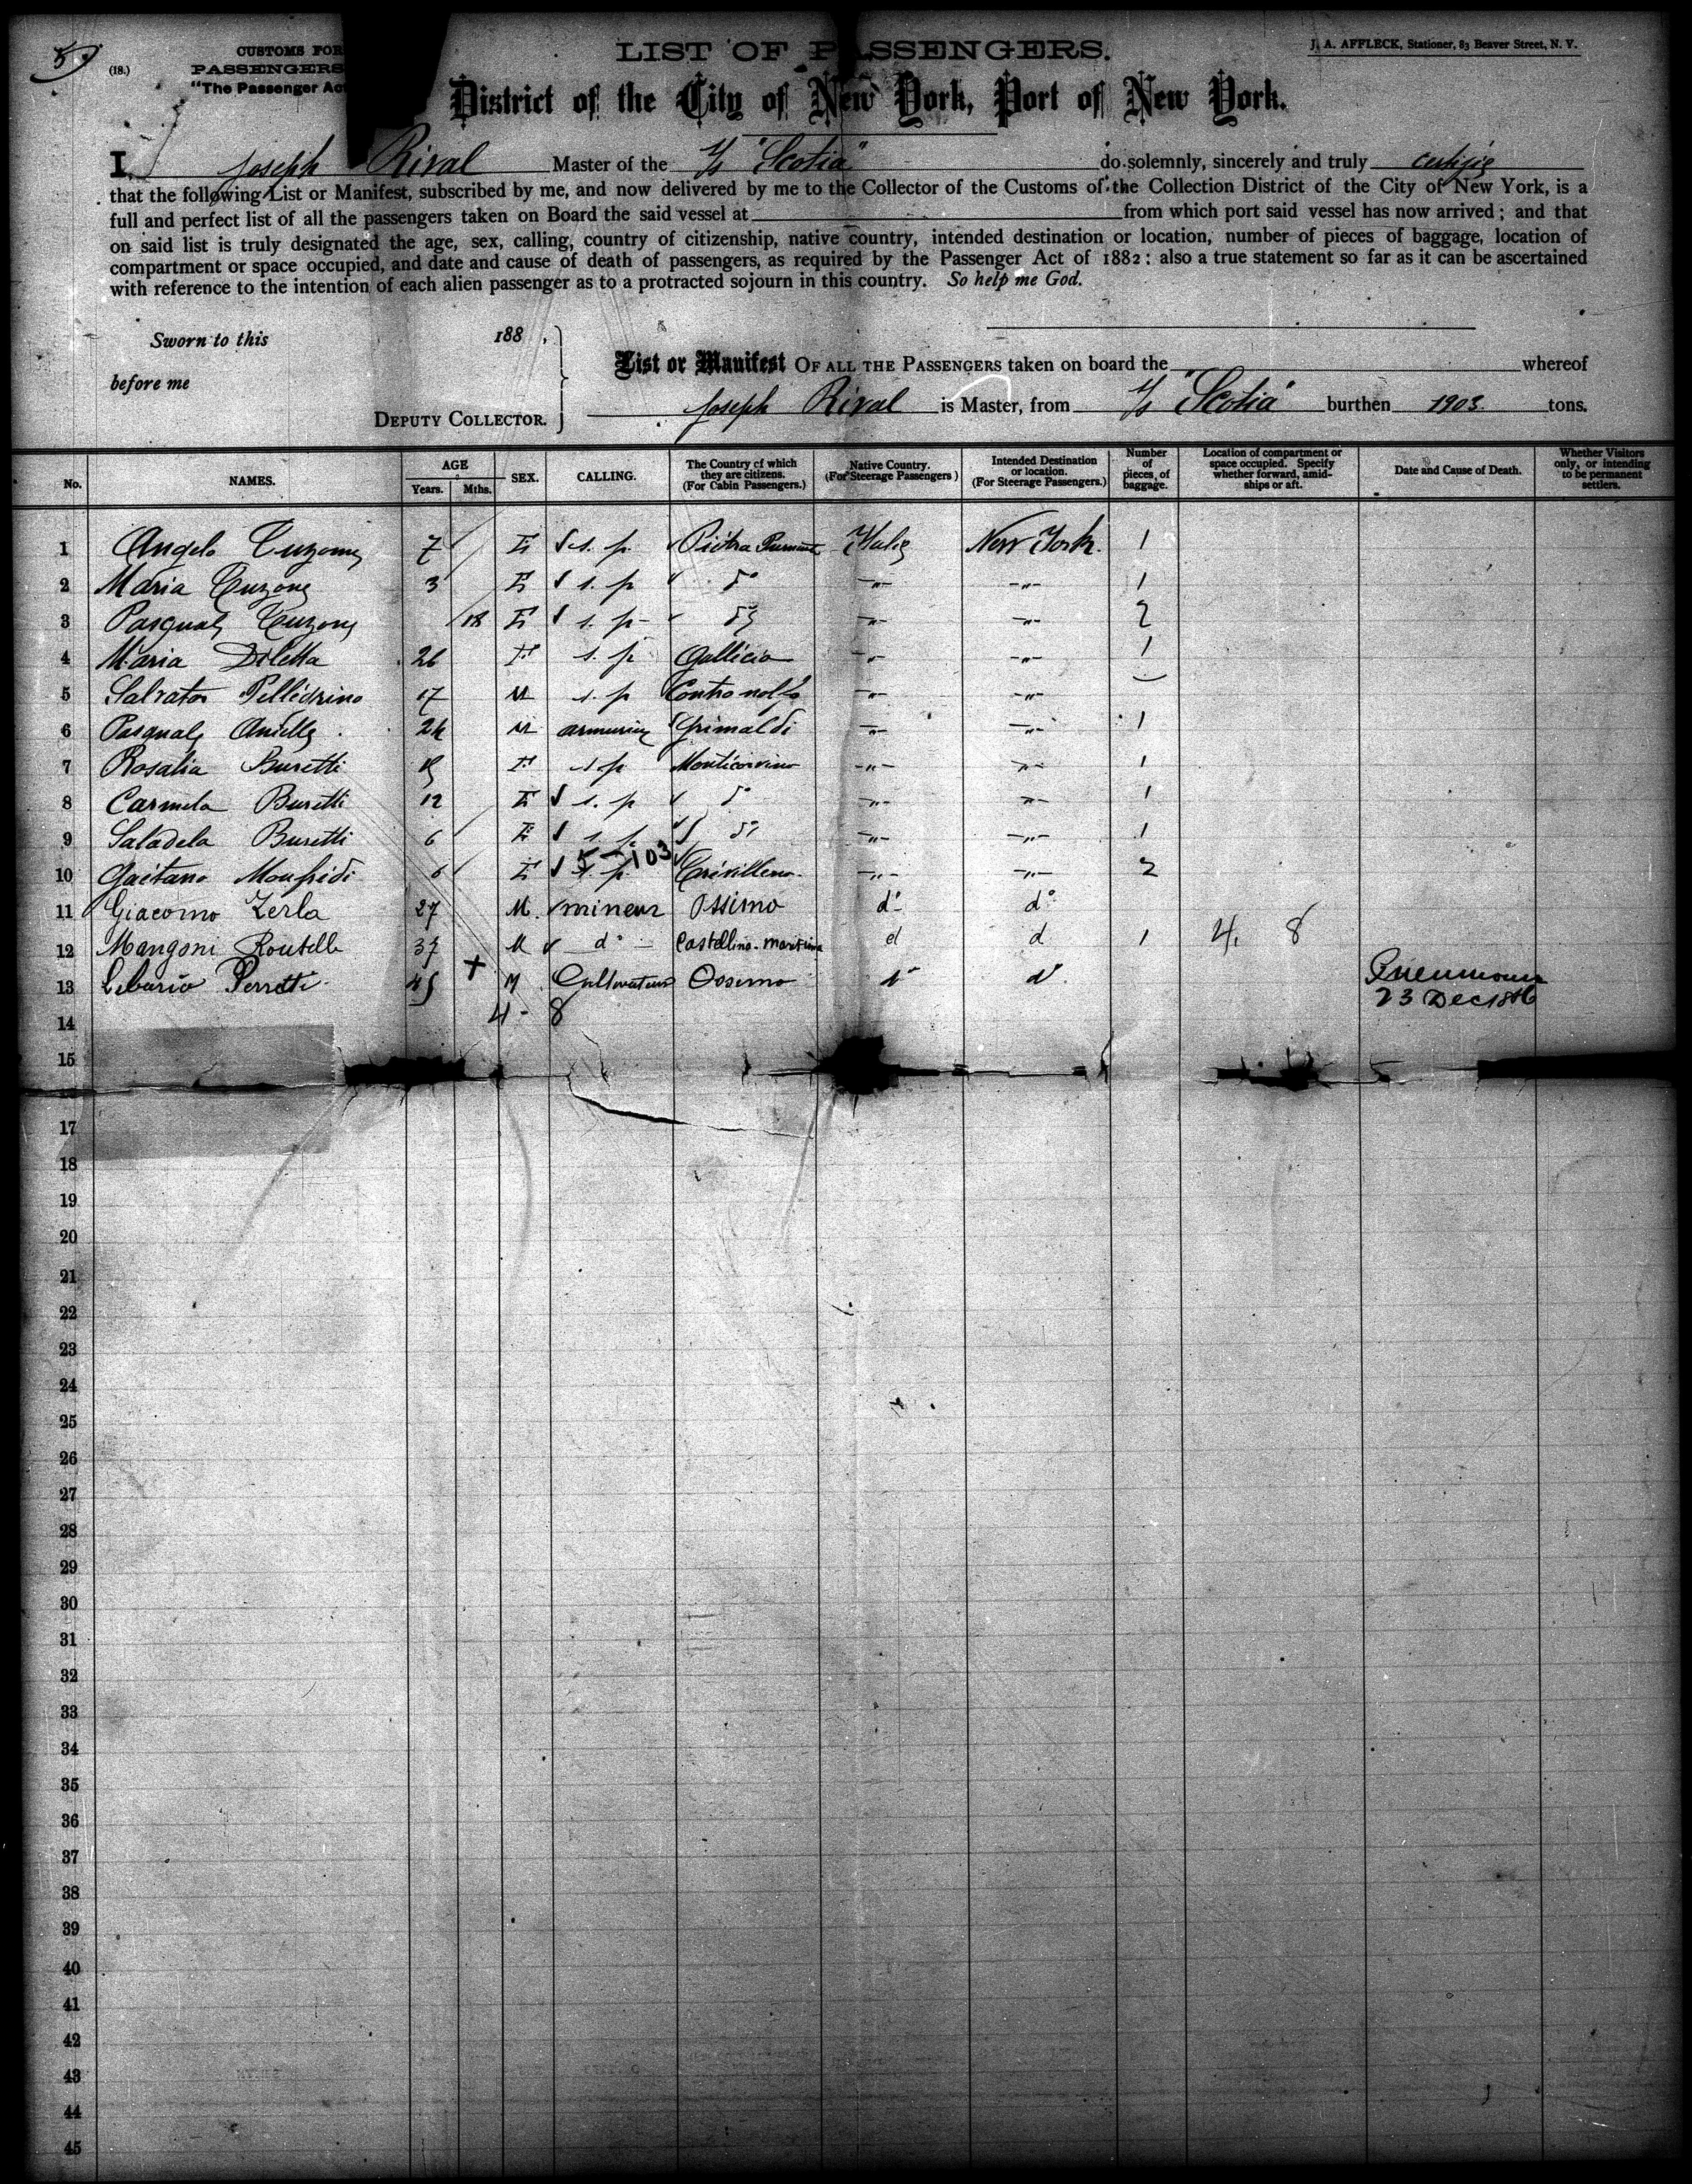 5
(18.)
CUSTOMS FOR
PASSENGERS
"The Passenger Act
LIST OF PASSENGERS.
J. A. AFFLECK, Stationer, 83 Beaver Street, N. Y.
District of the City of New York, Port of New York.
I, Joseph Rival Master of the "Scotia" do solemnly, sincerely and truly
that the following List or Manifest, subscribed by me, and now delivered by me to the Collector of the Customs of the Collection District of the City of New York, is a
full and perfect list of all the passengers taken on Board the said vessel at from which port said vessel has now arrived; and that
on said list is truly designated the age, sex, calling, country of citizenship, native country, intended destination or location, number of pieces of baggage, location of
compartment or space occupied, and date and cause of death of passengers, as required by the Passenger Act of 1882: also a true statement so far as it can be ascertained
with reference to the intention of each alien passenger as to a protracted sojourn in this country. So help me God.
Sworn to this 188 ,
before me
DEPUTY COLLECTOR.
List or Manifest OF ALL THE PASSENGERS taken on board the whereof
Joseph Rival is Master, from "Scotia" burthen 1903 tons.
No. NAMES. AGE Years. Mths. SEX. CALLING. The Country of which they are citizens. (For Cabin Passengers.) Native Country. (For Steerage Passengers) Intended Destination or location. (For Steerage Passengers.) Number of pieces of baggage. Location of compartment or space occupied. Specify whether forward, amidships or aft. Date and Cause of Death. Whether Visitors only, or intending to be permanent settlers.
1 Angelo 7 s. p. Pietra New York. 1
2 Maria 3 s. p. d° -"- -"- 1
3 18 s. p. -"- -"- 2
4 Maria Diletta 26 F s. p Gallicia -"- -"- 1
5 Salvator Pellegrino 17 M s. p -"- -"-
6 M Grimaldi -"- -"- 1
7 Rosalia Buretti F s.p Monticorvino -"- -"- 1
8 Carmela Buretti 12 s. p d° -"- -"- 1
9 Saladela Buretti 6 s. p. d° -"- -"- 1
5-103
10 Gaetano Monfridi 6 s. p. -"- -"- 2
11 Giacomo Zerla 27 M. mineur Ossimo d° d°
12 Mangoni 37 M d° Castellina-Maritima d d 1 4. 8
13 Liborio Perretti + M Cultivateur Ossimo d° d° 23 Dec 1886
4 - 8
14
15
17
18
19
20
21
22
23
24
25
26
27
28
29
30
31
32
33
34
35
36
37
38
39
40
41
42
43
44
45